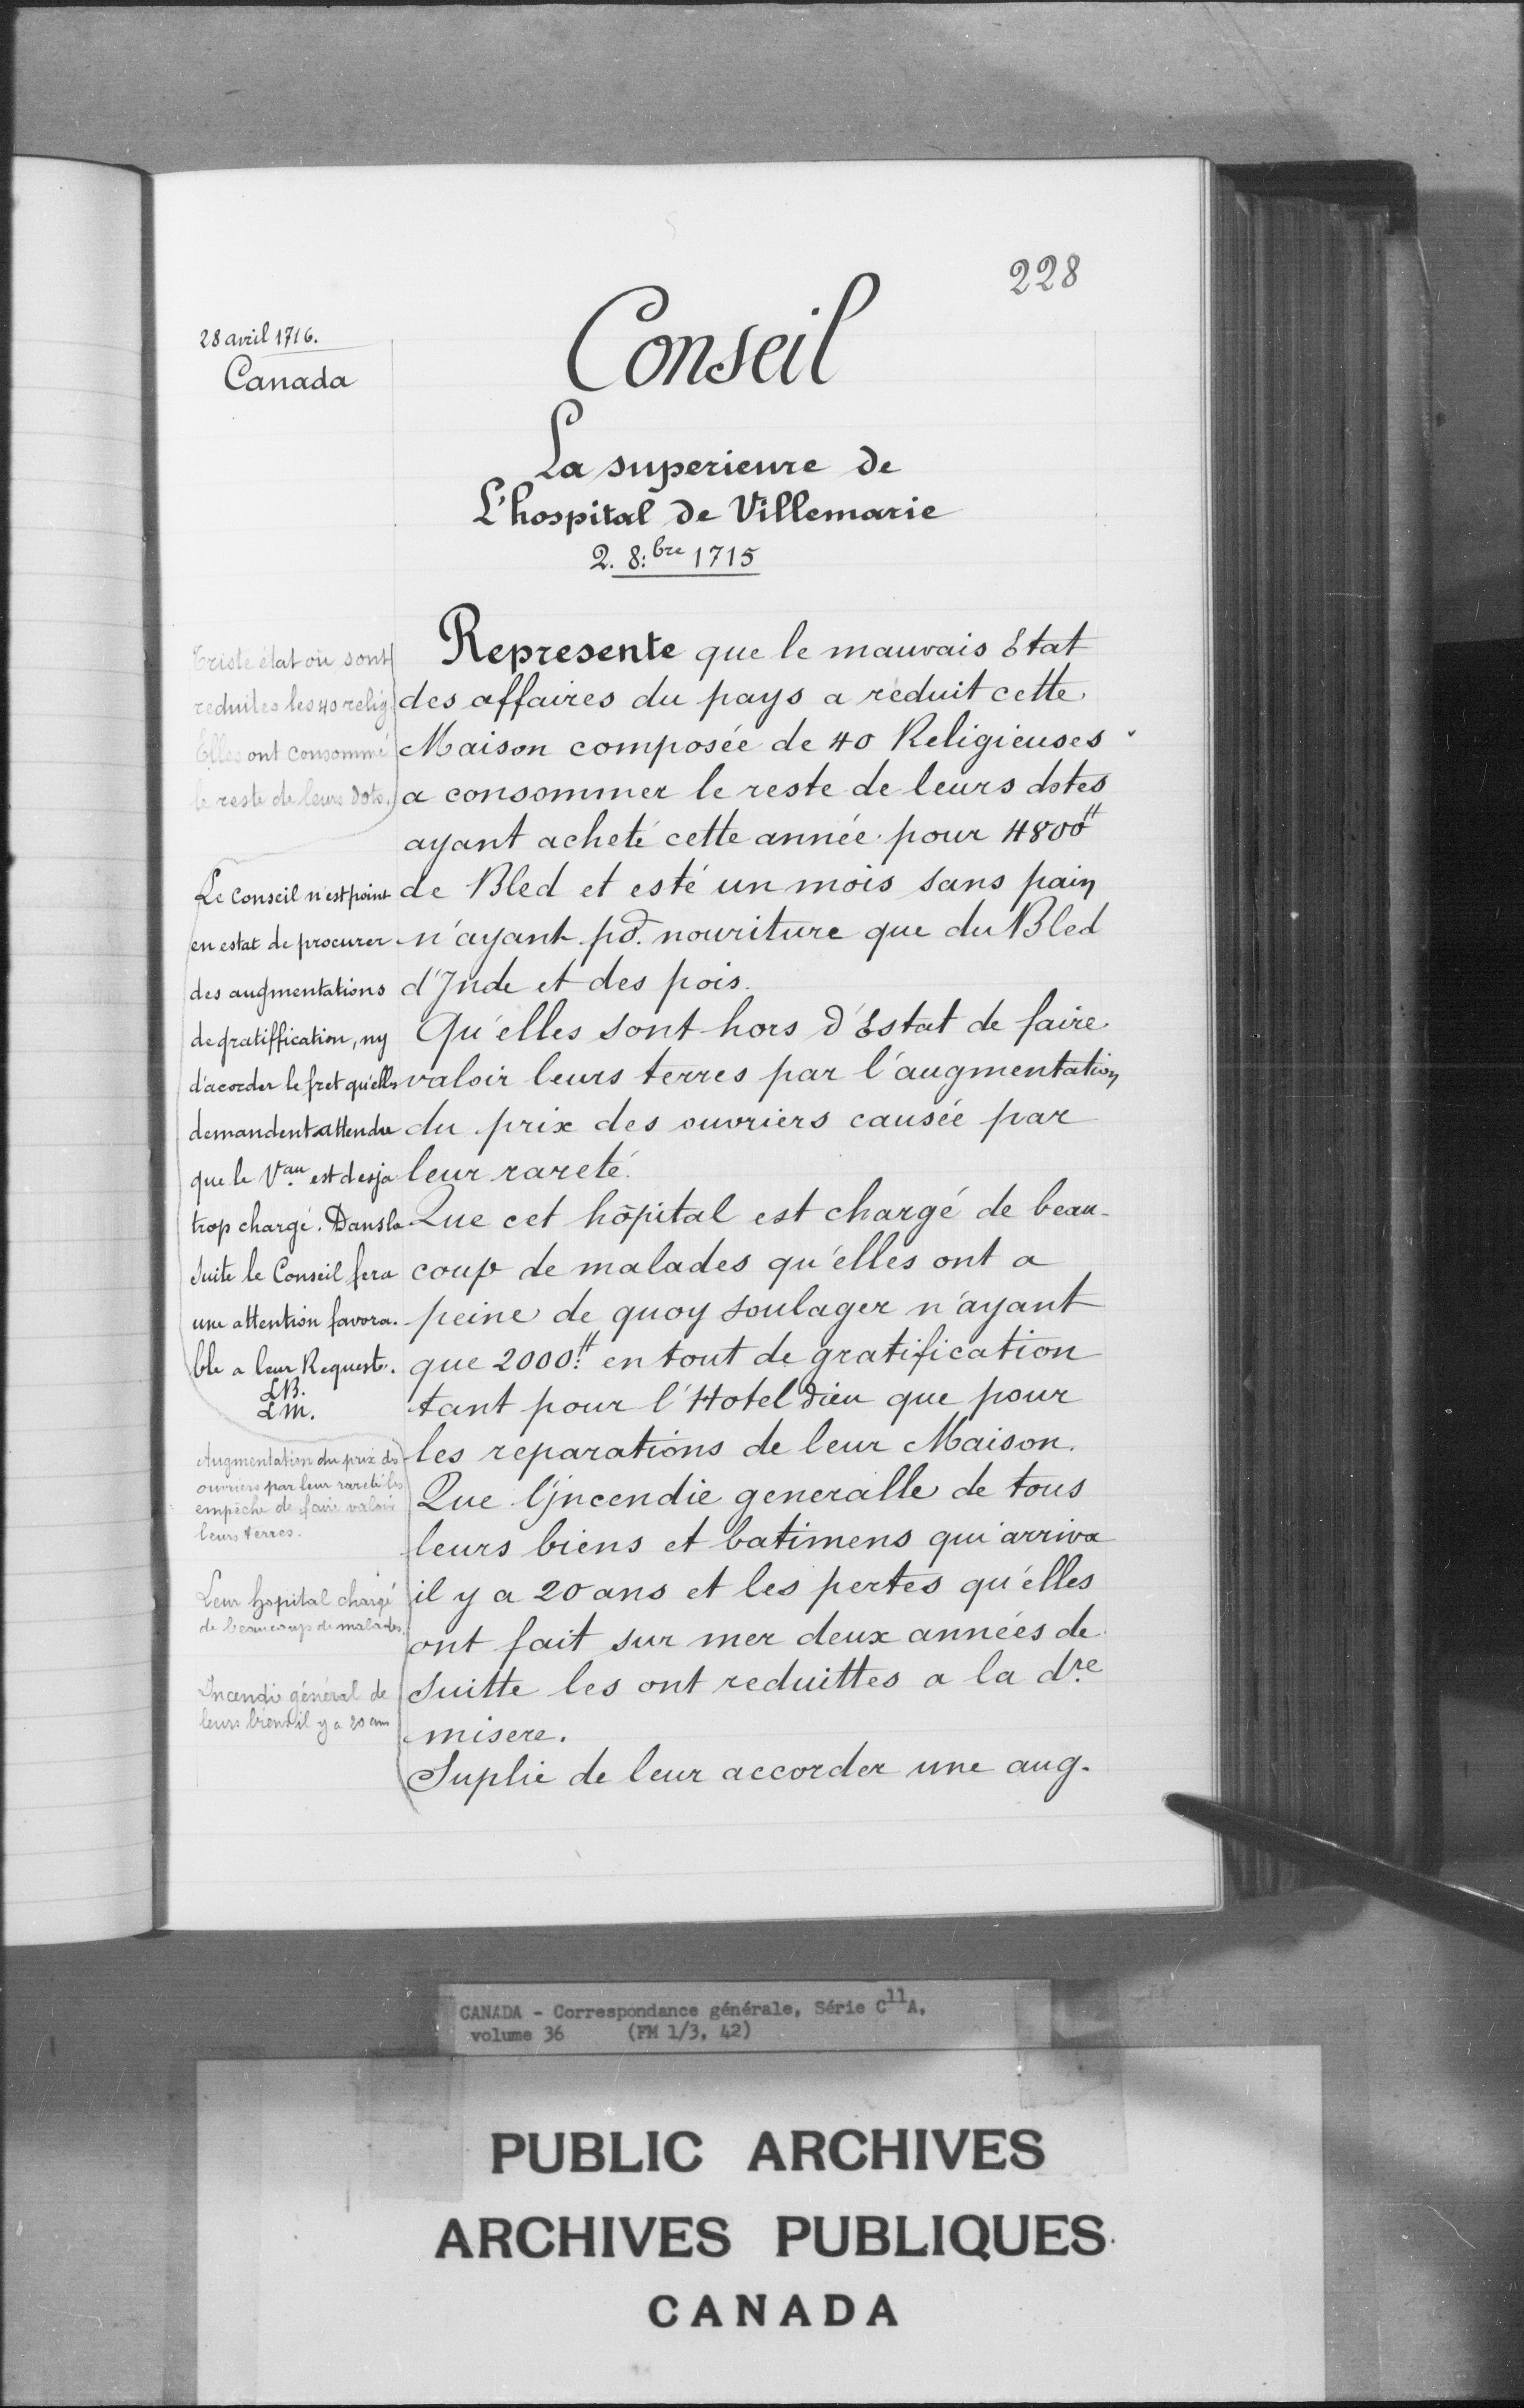 228
28 avril 1716.
Canada
Conseil
La superieure de
L'hospital de Villemarie
2. 8:bre 1715
Triste état où sont
reduites les 40 relig.
Elles ont consommé
le reste de leurs dots.
Le Conseil n'est point
en estat de procurer
des augmentations
de gratiffication, ny
d'acorder le fret qu'elles
demandent attendu
que le Vau est desja
trop chargé. Dans la
suite le Conseil fera
une attention favora-
ble a leur Requeste.
LB.
LM.
Augmentation du prix des
ouvriers par leur rareté les
empêche de faire valoir
leurs terres.
Leur hopital chargé
de beaucoup de malades.
Incendie général de
leurs biens il y a 20 ans
Represente que le mauvais Estat
des affaires du pays a réduit cette
Maison composée de 40 Religieuses
a consommer le reste de leurs dotes
ayant acheté cette année pour 4800#
de Bled et esté un mois sans pain
n'ayant pd. nouriture que du Bled
d'Inde et des pois.
Qu'elles sont hors d'Estat de faire
valoir leurs terres par l'augmentation
du prix des ouvriers causée par
leur rareté.
Que cet hôpital est chargé de beau-
coup de malades qu'elles ont a
peine de quoy soulager n'ayant
que 2000# en tout de gratification
tant pour l'Hotel Dieu que pour
les reparations de leur Maison.
Que l'jncendie generalle de tous
leurs biens et batimens qui arriva
il y a 20 ans et les pertes qu'elles
ont fait sur mer deux années de
suitte les ont reduittes a la dre
misere.
Suplie de leur accorder une aug-
CANADA - Correspondance générale, Série C11A,
volume 36 (FM 1/3, 42)
PUBLIC ARCHIVES
ARCHIVES PUBLIQUES
CANADA